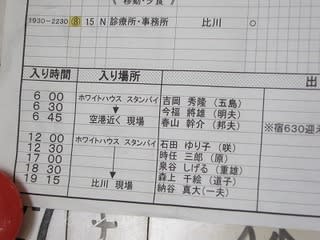 《 移動・夕食 》
1930−2230 ⑧ 15 N 診療所・事務所 比川 ○
入り時間 入り場所 出
6 00 ホワイトハウス スタンバイ 吉岡 秀隆 (五島)
6 30 今福 將雄 (明夫)
6 45 空港近く 現場 春山 幹介 (邦夫) ※宿630迎え
12 00 ホワイトハウス スタンバイ 石田 ゆり子 (咲)
12 30 時任 三郎 (原)
17 00 泉谷 しげる (重雄)
18 30 森上 千絵 (道子)
19 15 比川 現場 納谷 真大 (一夫)